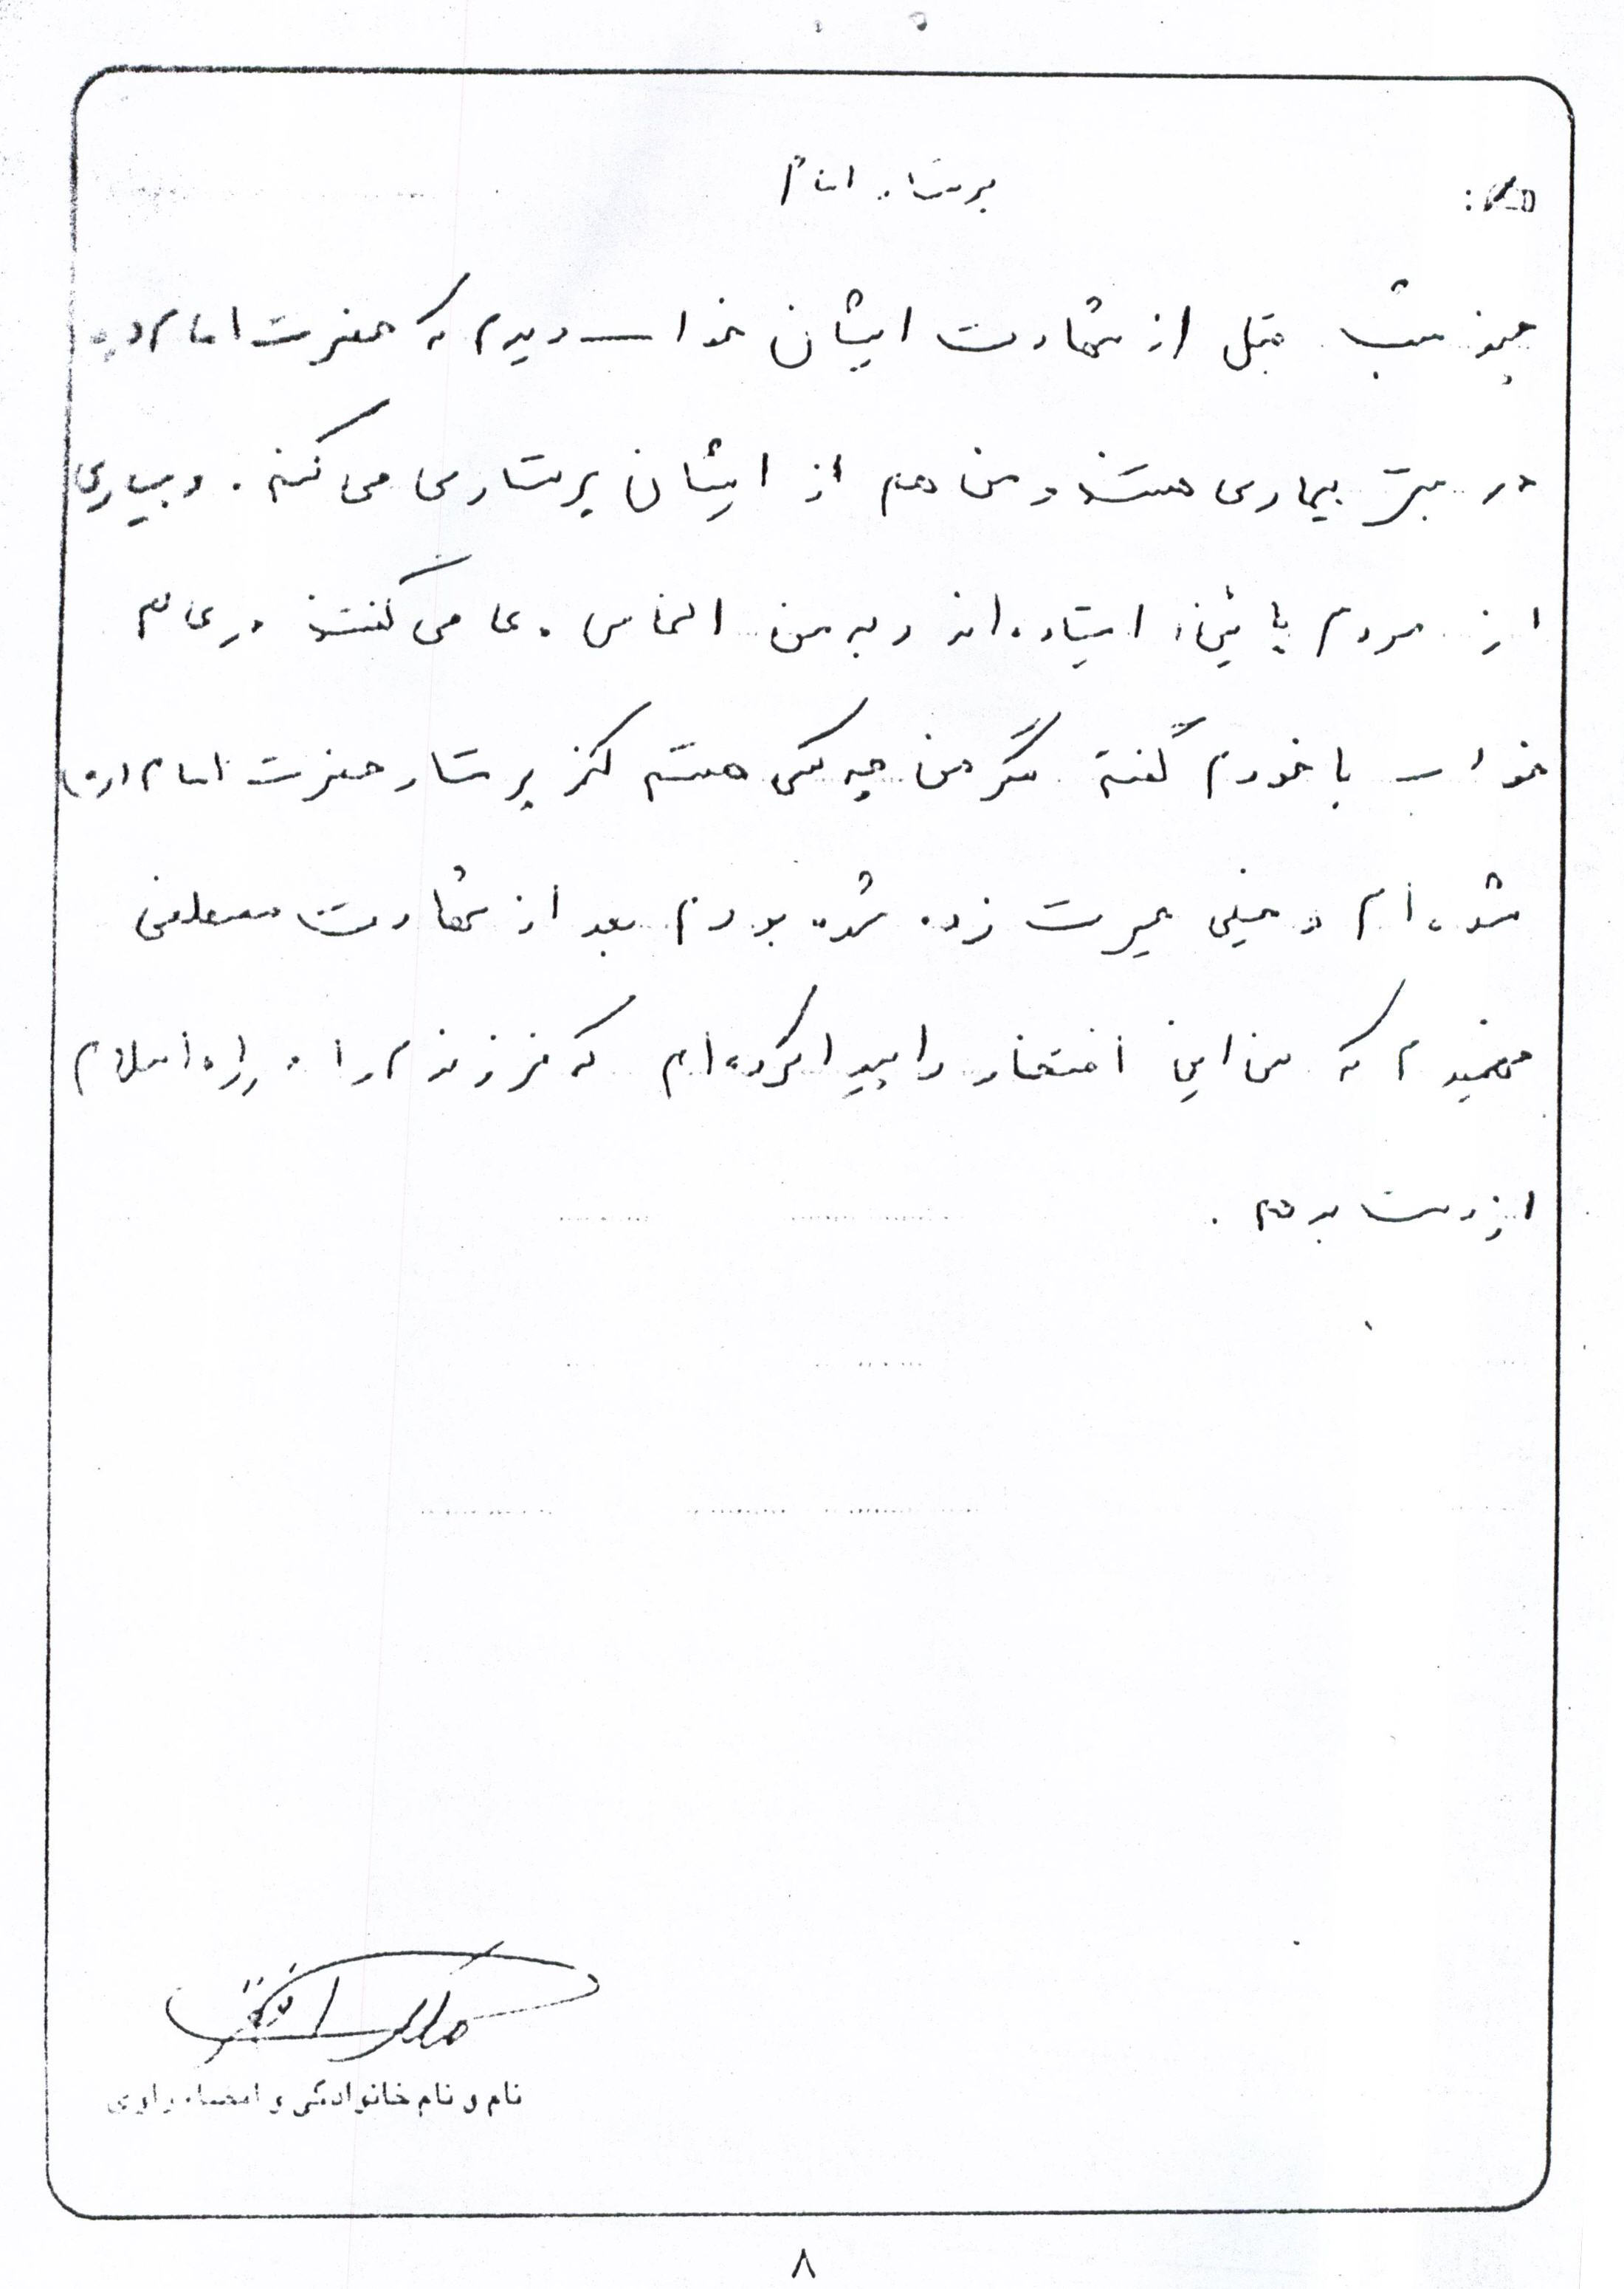 پرستار امام
چند شب قبل از شهادت ایشان خواب دیدم که حضرت امام (ره)
در بستر بیماری هستند و من هم از ایشان پرستاری می کنم . و بسیاری
از مردم پائین ایستاده اند و به من التماس دعا می گفتند در عالم
خواب با خودم گفتم مگر من چه کسی هستم که پرستار حضرت امام (ره)
شده ام و خیلی حیرت زده شده بودم بعد از شهادت مصطفی
فهمیدم که من این افتخار را پیدا کرده ام که فرزندم را در راه اسلام
از دست بدهم .
نام و نام خانوادگی و امضاء راوی
۸